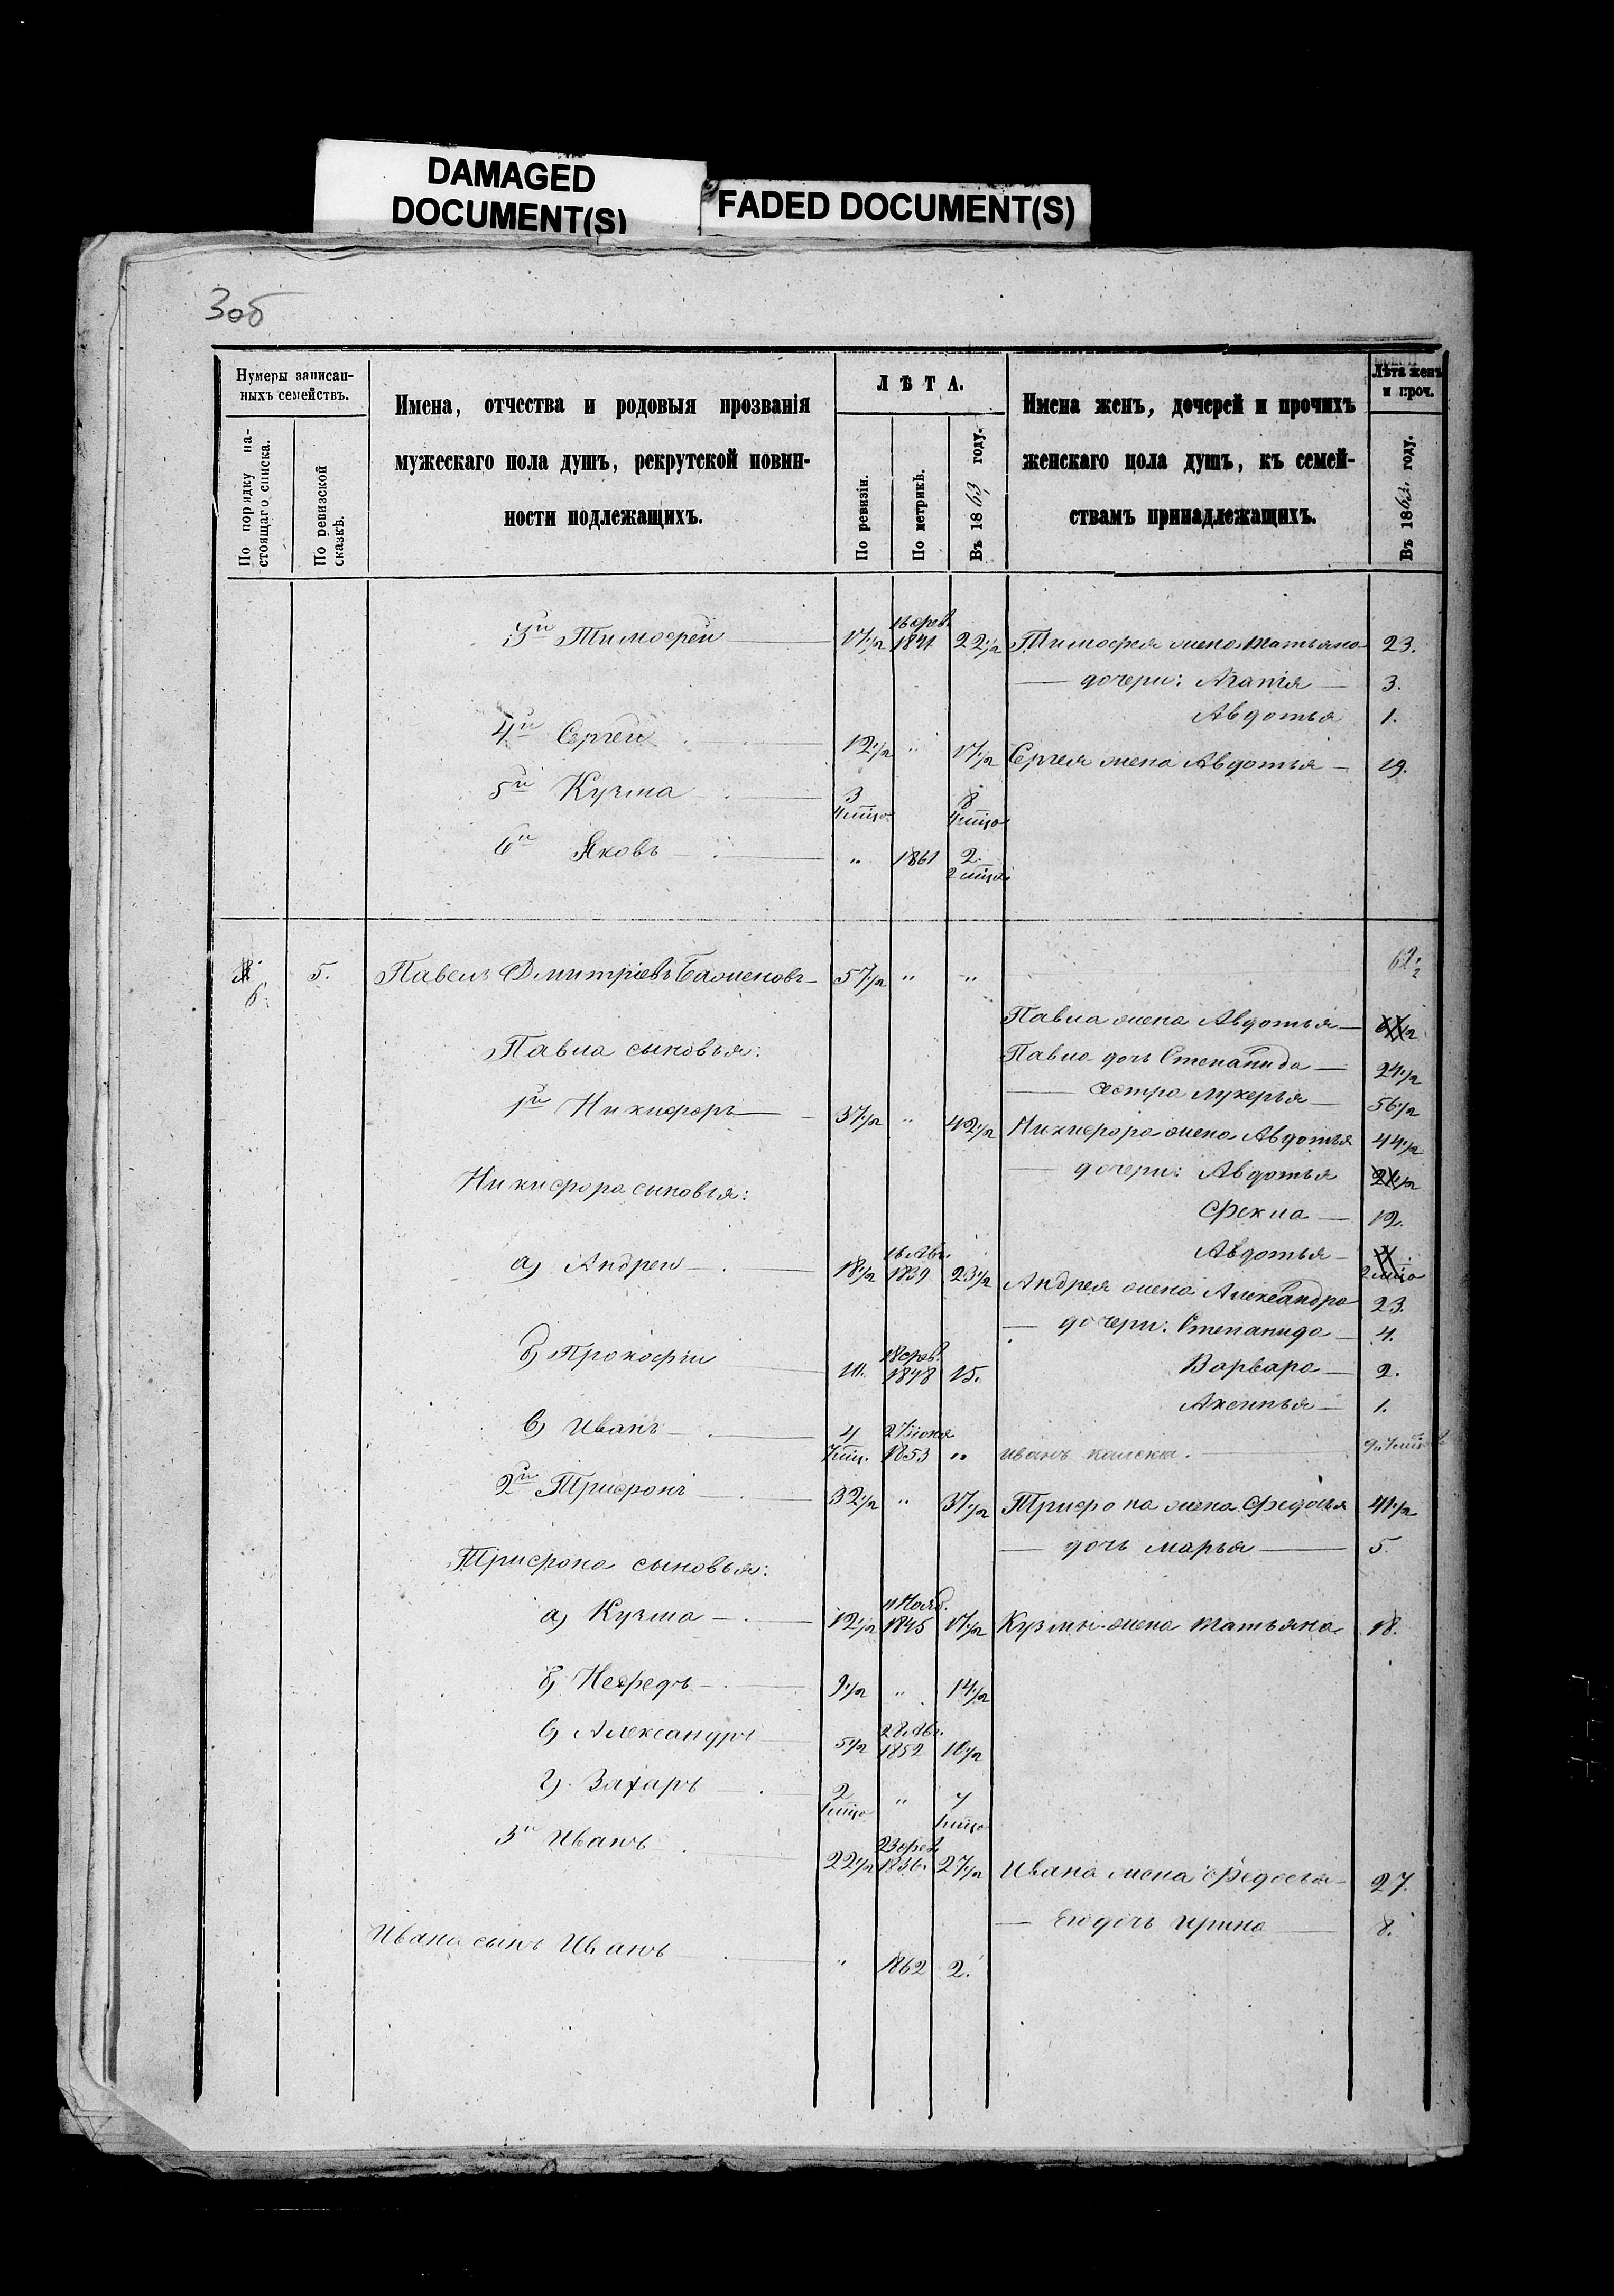 DAMAGED
DOCUMENT(S)
FADED DOCUMENT(S)
3об
Нумеры записан-
ныхъ семействъ.
По порядку на-
стоящаго списка.
По ревизской
сказкѣ.
Имена, отчества и родовыя прозванія
мужескаго пола душъ, рекрутской повин-
ности подлежащихъ.
ЛѢТА.
По ревизіи.
По метрикѣ.
Въ 1863 году.
Имена женъ, дочерей и прочихъ
женскаго пола душъ, къ семей-
ствамъ принадлежащихъ.
Лѣта женъ
и проч.
Въ 1863 году.
3й Тимофей 17½ 16 фев. 1841 22½ Тимофея жена Татьяна 23.
дочери: Агапія 3.
Авдотья 1.
4й Сергей 12½ " 17½ Сергея жена Авдотья 19.
5й Кузма 3 4 мѣца 8 4 мѣца
6й Яковъ " 1861 2. 2 мѣца
6. 5. Павелъ Дмитріевъ Баженовъ 57½ " " 62½
Павла жена Авдотья
Павла сыновья: Павла дочь Степанида 24½
сестра Лукерья 56½
1й Никифоръ 37½ " 42½ Никифора жена Авдотья 44½
дочери: Авдотья
Никифора сыновья:
Фекла 12.
Авдотья 2 мѣца
а) Андрей 18½ 16 Авг. 1839 23½ Андрея жена Александра 23.
дочери: Степанида 4.
б) Прокофій 10. 18 фев. 1848 15. Варвара 2.
Аксинья 1.
в) Иванъ 4 7 мѣц. 27 іюня 1853 " Иванъ
2й Трифонъ 32½ " 37½ Трифона жена Федосья 41½
дочь Марья 5.
Трифона сыновья:
а) Кузма 12½ 11 Нояб. 1845 17½ Кузмы жена Татьяна 18.
б) Нефедъ 9½ " 14½
в) Александръ 5½ 28 Авг. 1852 10½
г) Захаръ 2 1 мѣца " 7 1 мѣца
3й Иванъ 22½ 23 фев. 1836 27½ Ивана жена Федосья 27.
его дочь Ирина 8.
Ивана сынъ Иванъ " 1862 2.